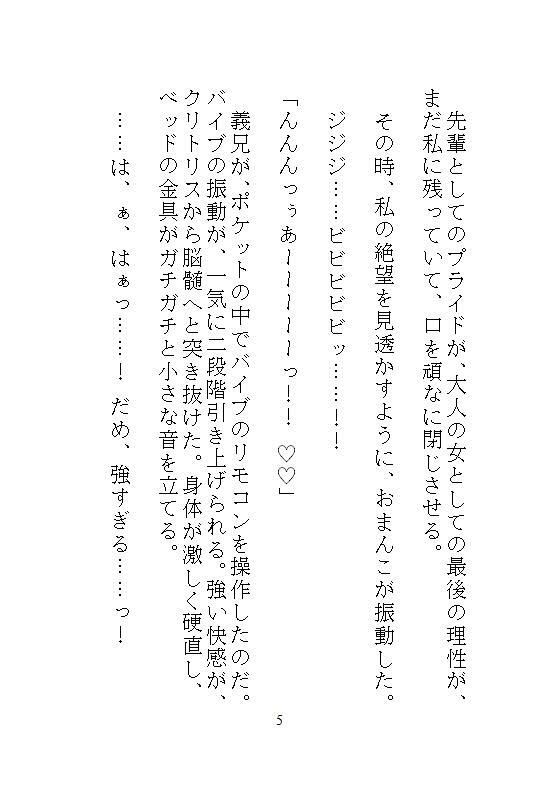 先輩としてのプライドが、大人の女としての最後の理性が、
まだ私に残っていて、口を頑なに閉じさせる。
その時、私の絶望を見透かすように、おまんこが振動した。
ジジジ……ビビビビビッ……！！
「んんんっぅあ～～～～～っ！！　♡♡」
義兄が、ポケットの中でバイブのリモコンを操作したのだ。
バイブの振動が、一気に二段階引き上げられる。強い快感が、
クリトリスから脳髄へと突き抜けた。身体が激しく硬直し、
ベッドの金具がガチガチと小さな音を立てる。
……は、ぁ、はぁっ……！だめ、強すぎる……っ！
5